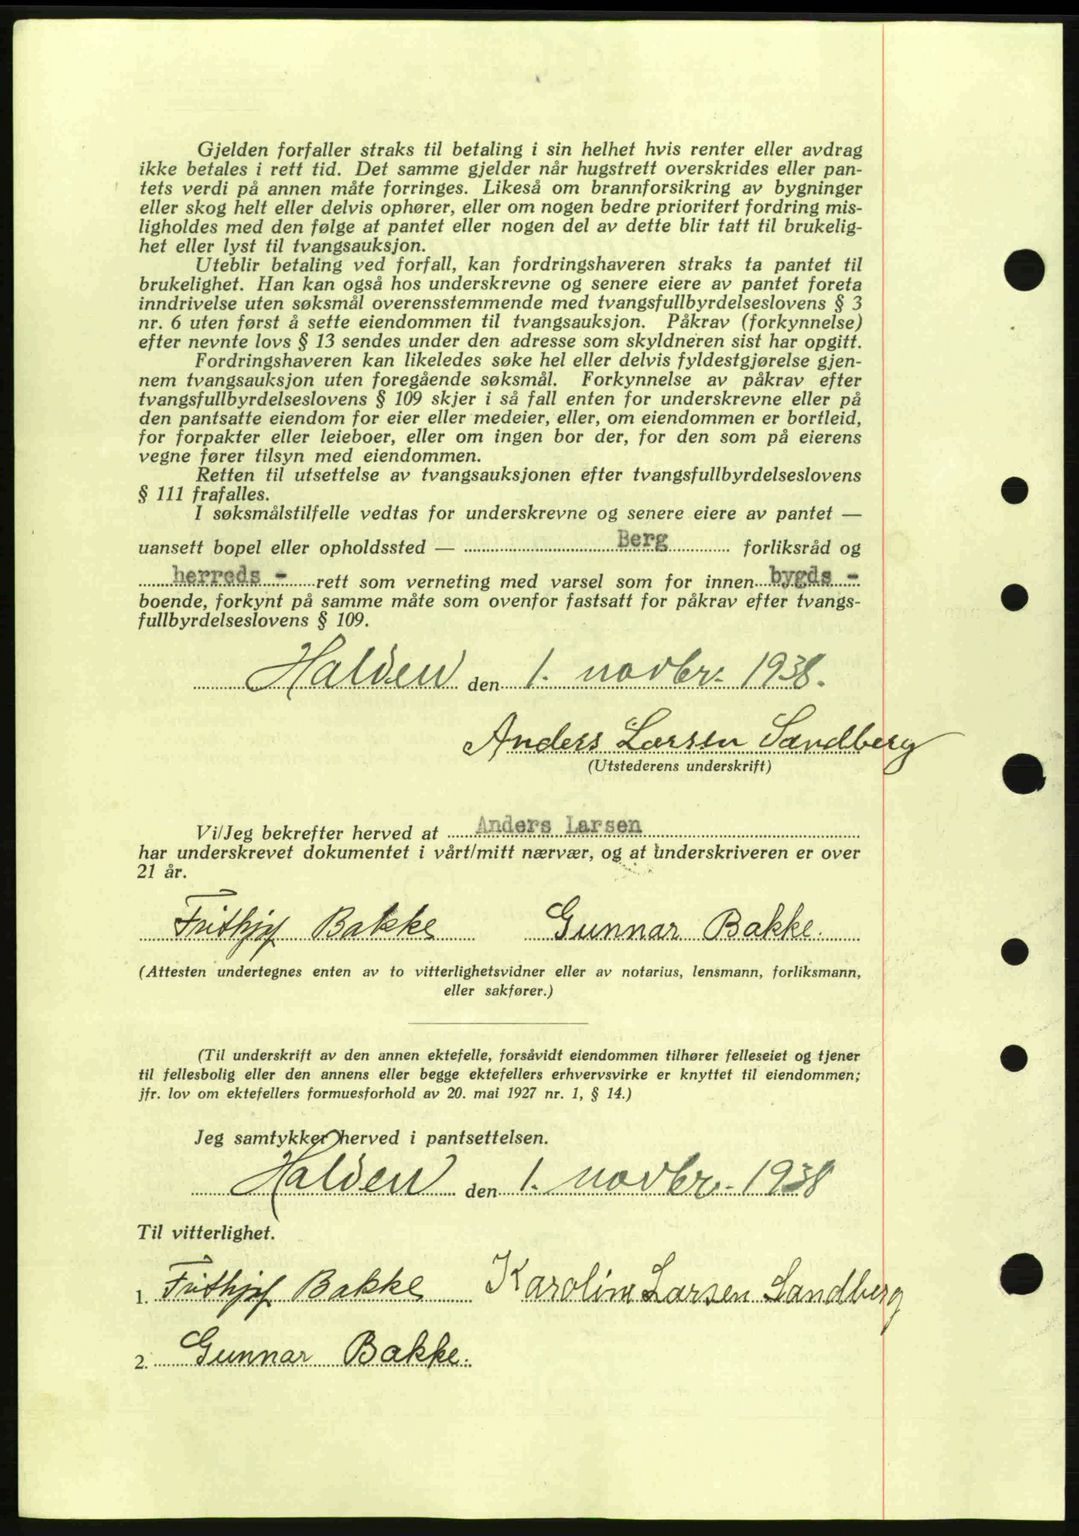 Gjelden forfaller straks til betaling i sin helhet hvis renter eller avdrag
ikke betales i rett tid. Det samme gjelder når hugstrett overskrides eller pan-
tets verdi på annen måte forringes. Likeså om brannforsikring av bygninger
eller skog helt eller delvis ophører, eller om nogen bedre prioritert fordring mis-
ligholdes med den følge at pantet eller nogen del av dette blir tatt til brukelig-
het eller lyst til tvangsauksjon.
Uteblir betaling ved forfall, kan fordringshaveren straks ta pantet til
brukelighet. Han kan også hos underskrevne og senere eiere av pantet foreta
inndrivelse uten søksmål overensstemmende med tvangsfullbyrdelseslovens § 3
nr. 6 uten først å sette eiendommen til tvangsauksjon. Påkrav (forkynnelse)
efter nevnte lovs § 13 sendes under den adresse som skyldneren sist har opgitt.
Fordringshaveren kan likeledes søke hel eller delvis fyldestgjørelse gjen-
nem tvangsauksjon uten foregående søksmål. Forkynnelse av påkrav efter
tvangsfullbyrdelseslovens § 109 skjer i så fall enten for underskrevne eller på
den pantsatte eiendom for eier eller medeier, eller, om eiendommen er bortleid,
for forpakter eller leieboer, eller om ingen bor der, for den som på eierens
vegne fører tilsyn med eiendommen.
Retten til utsettelse av tvangsauksjonen efter tvangsfullbyrdelseslovens
§ 111 frafalles.
I søksmålstilfelle vedtas for underskrevne og senere eiere av pantet —
uansett bopel eller opholdssted — Berg forliksråd og
herreds - rett som verneting med varsel som for innen bygds -
boende, forkynt på samme måte som ovenfor fastsatt for påkrav efter tvangs-
fullbyrdelseslovens § 109.
Halden den 1. novbr. 1938.
Anders Larsen Sandberg
(Utstederens underskrift)
Vi/Jeg bekrefter herved at Anders Larsen
har underskrevet dokumentet i vårt/mitt nærvær, og at underskriveren er over
21 år.
Frithjof Bakke Gunnar Bakke.
(Attesten undertegnes enten av to vitterlighetsvidner eller av notarius, lensmann, forliksmann,
eller sakfører.)
(Til underskrift av den annen ektefelle, forsåvidt eiendommen tilhører felleseiet og tjener
til fellesbolig eller den annens eller begge ektefellers erhvervsvirke er knyttet til eiendommen;
jfr. lov om ektefellers formuesforhold av 20. mai 1927 nr. 1, § 14.)
Jeg samtykker herved i pantsettelsen.
Halden den 1. novbr. 1938
Til vitterlighet.
1. Frithjof Bakke Karoline Larsen Sandberg
2. Gunnar Bakke.